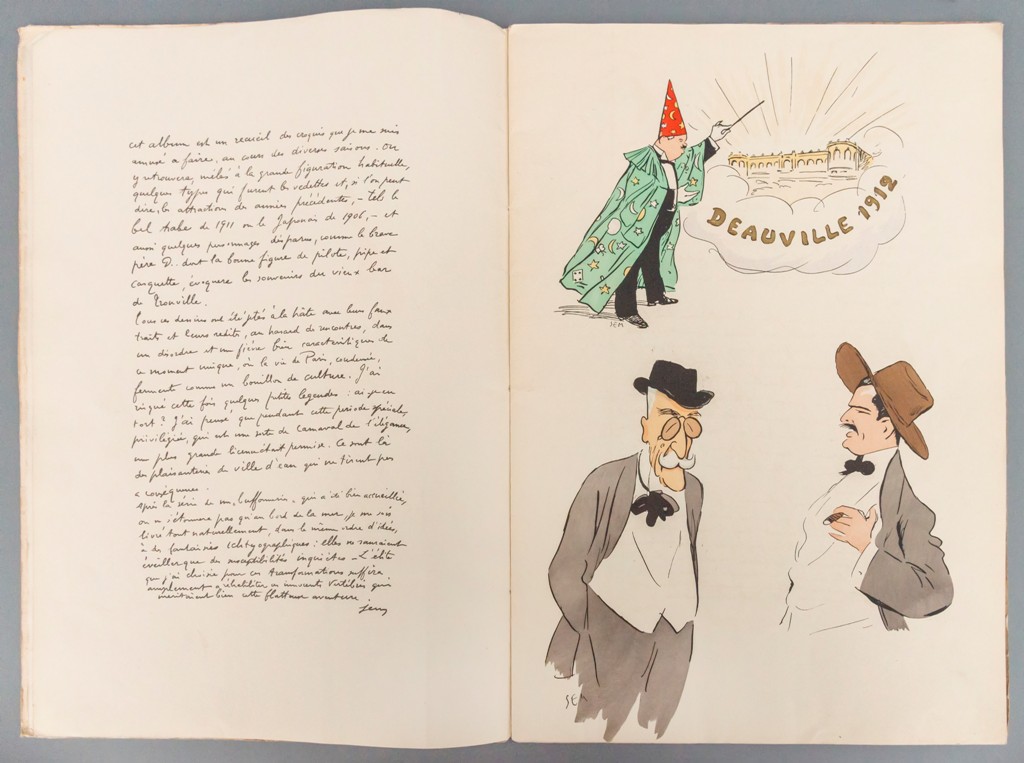 cet album est un recueil des croquis que je me suis
amusé a faire, au cours des diverses saisons. On
y retrouvera, mêlés à la grande figuration habituelle,
quelques types qui furent les vedettes et, si l'on peut
dire, les attractions des années précédentes, - tels le
bel Arabe de 1911 ou le Japonais de 1906, - et
aussi quelques personnages disparus, comme le brave
père D.. dont la bonne figure de pilote, pipe et
casquette, évoquera les souvenirs du vieux bar
de Trouville.
Tous ces dessins ont été jetés à la hâte avec leurs faux
traits et leurs redites, au hasard de rencontres, dans
un désordre et une fièvre bien caractéristiques de
ce moment unique, où la vie de Paris, condensée,
fermente comme un bouillon de culture. J'ai
risqué cette fois quelques petites légendes : ai-je eu
tort? J'ai pensé, que pendant cette période spéciale,
privilégiée, qui est une sorte de Carnaval de l'élégance,
une plus grande licence était permise. Ce sont là
des plaisanteries de ville d'eau qui ne tirent pas
a conséquence.
Après la série de mes buffonneries, qui a été bien accueillie,
on ne s'étonnera pas qu'au bord de la mer, je me sois
livré tout naturellement, dans le même ordre d'idées,
à des fantaisies ichtyographiques : elles ne sauraient
éveiller que des susceptibilités inquiètes. L'élite
que j'ai choisie pour ces transformations suffira
amplement a réhabiliter ces innocents vertébrés qui
méritaient bien cette flatteuse aventure.
Sem
DEAUVILLE 1912
SEM
SEM